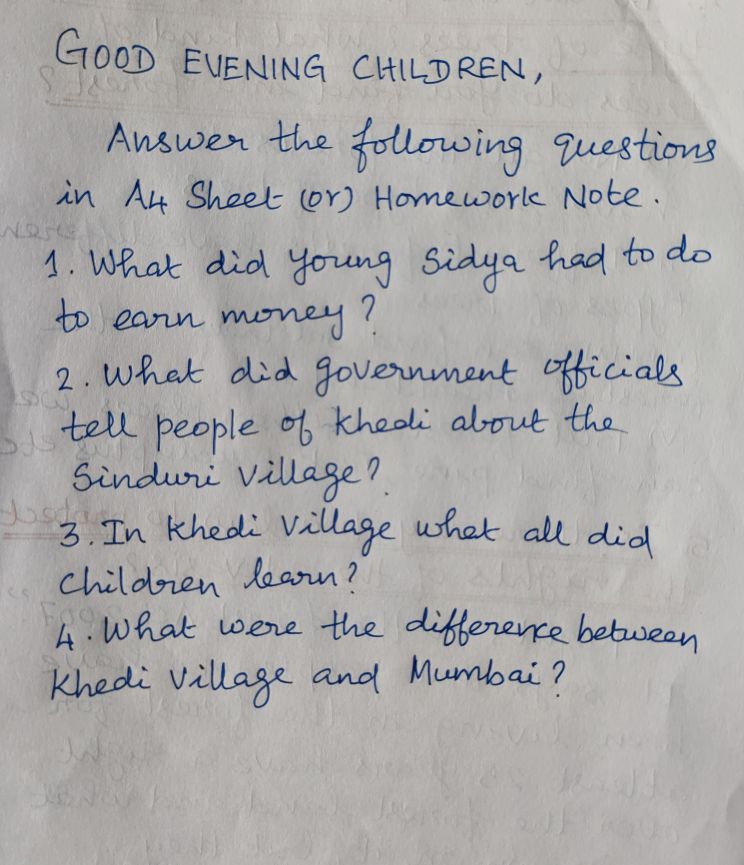 GOOD EVENING CHILDREN,
Answer the following questions
in A4 Sheet (or) Homework Note.
1. What did young Sidya had to do
to earn money?
2. What did government officials
tell people of Khedi about the
Sinduri Village?
3. In Khedi Village what all did
Children learn?
4. What were the difference between
Khedi Village and Mumbai?